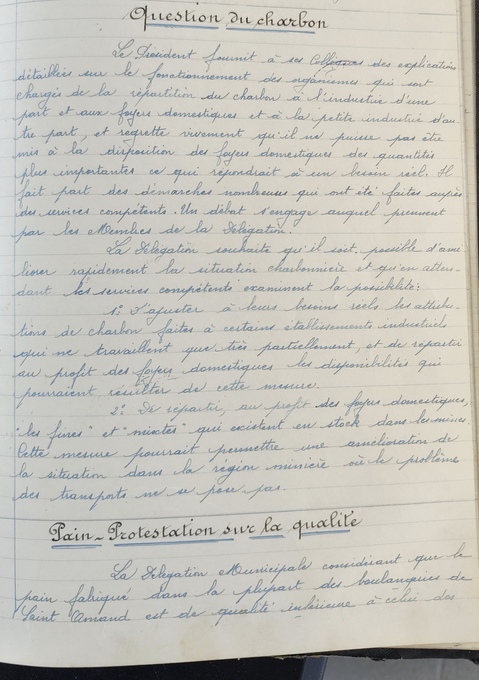 Question du charbon
Le Président fournit à ses Collègues des explications
détaillées sur le fonctionnement des organismes qui sont
chargés de la répartition du charbon à l'industrie d'une
part et aux foyers domestiques et à la petite industrie d'au-
tre part, et regrette vivement qu'il ne puisse pas être
mis à la disposition des foyers domestiques des quantités
plus importantes ce qui répondrait à un besoin réel. Il
fait part des démarches nombreuses qui ont été faites auprès
des services compétents. Un débat s'engage auquel prennent
part les Membres de la Délégation.
La Délégation souhaite qu'il soit possible d'amé
liorer rapidement la situation charbonnière et qu'en atten-
dant les services compétents examinent la possibilité:
1º D'ajuster à leurs besoins réels les attribu-
tions de charbon faites à certains établissements industriels
qui ne travaillent que très partiellement, et de répartir
au profit des foyers domestiques les disponibilités qui
pourraient résulter de cette mesure.
2º De répartir, au profit des foyers domestiques,
"les fines" et "mixtes" qui existent en stock dans les mines.
Cette mesure pourrait permettre une amélioration de
la situation dans la région minière où le problème
des transports ne se pose pas.
Pain - Protestation sur la qualité
La Délégation Municipale considérant que le
pain fabriqué dans la plupart des boulangeries de
Saint Amand est de qualité inférieure à celui des